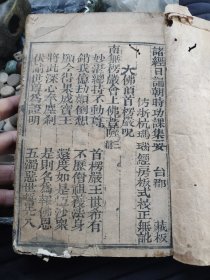 諸經日誦朝時功課集要 台郡 藏板
仿浙杭瑪瑙經房板式校正無訛
大佛頂首楞嚴咒
南無楞嚴會上佛菩薩
妙湛總持不動尊 首楞嚴王世希有
銷我億劫顛倒想 不歷僧祇獲法身
願今得果成寶王 還度如是恒沙衆
將此深心奉塵刹 是則名爲報佛恩
伏請世尊爲證明 五濁惡世誓先入